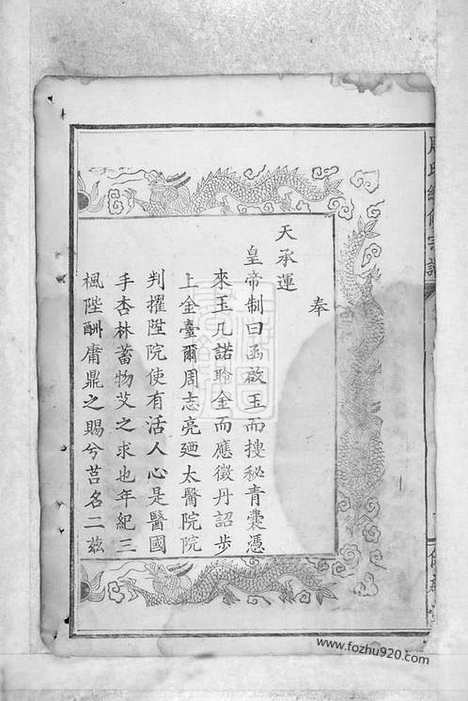 奉
天承運
皇帝制曰函啟玉而搜秘青囊憑
來玉几諾聆金而應徵丹詔步
上金臺爾周志亮廼太醫院院
判擢陞院使有活人心是醫國
手杏林蓄物艾之求也年紀三
楓陛酬庸鼎之賜兮莒名二玆
www.fozhu920.com